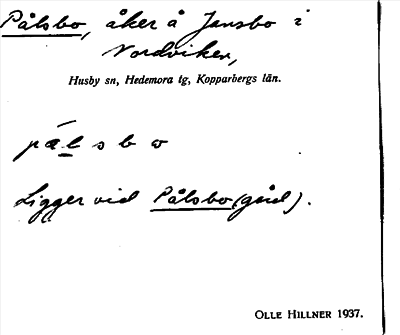 Pålsbo, åker å Jansbo i
Nordviken,
Husby sn, Hedemora tg, Kopparbergs län.
pálsbo
Ligger vid Pålsbo (gård).
OLLE HILLNER 1937.